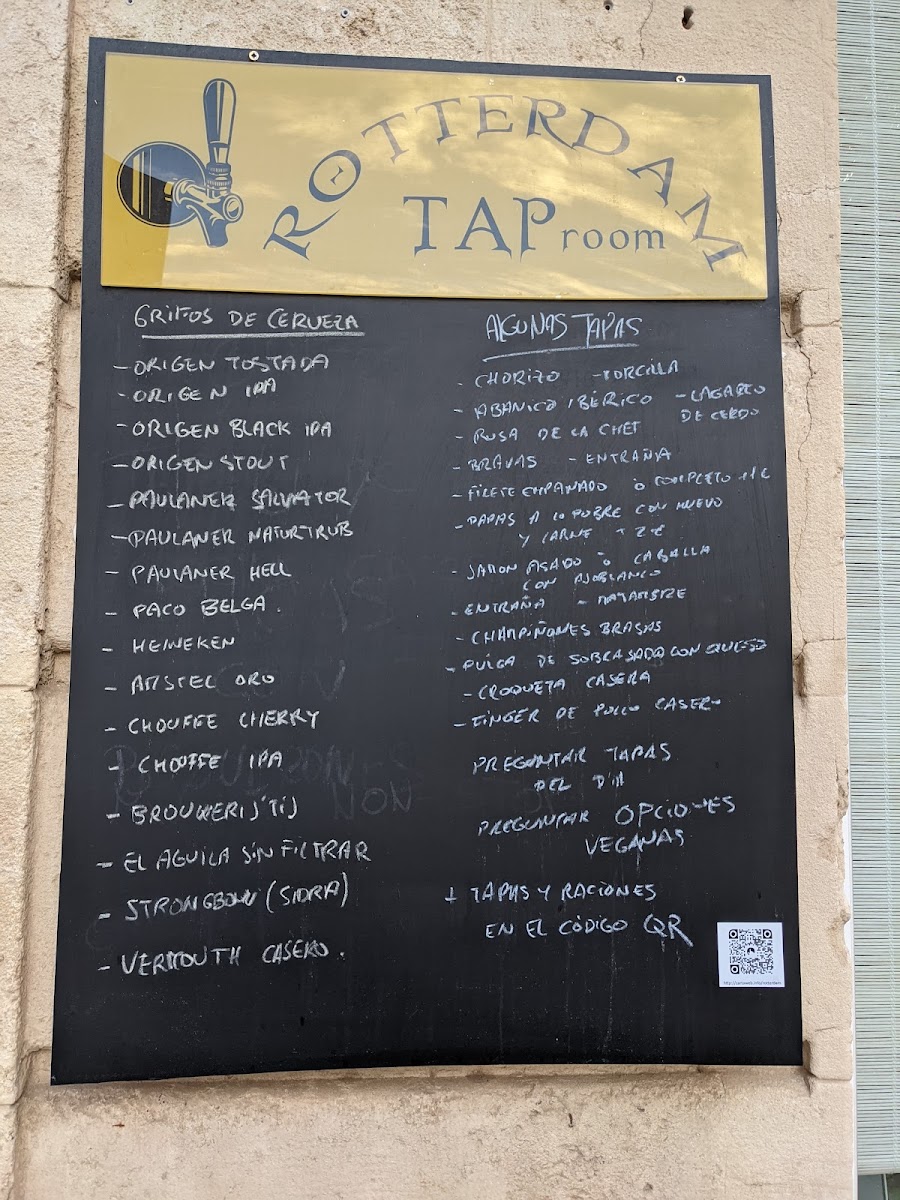 ROTTERDAM
TAP room
GRIFOS DE CERVEZA
- ORIGEN TOSTADA
- ORIGEN IPA
- ORIGEN BLACK IPA
- ORIGEN STOUT
- PAULANER SALVATOR
- PAULANER NATURTRUB
- PAULANER HELL
- PACO BELGA.
- HEINEKEN
- AMSTEL ORO
- CHOUFFE CHERRY
- CHOUFFE IPA
- BROUWERIJ'TIJ
- EL AGUILA SIN FILTRAR
- STRONGBOW (SIDRA)
- VERMOUTH CASERO.
ALGUNAS TAPAS
- CHORIZO - MORCILLA
- ABANICO IBERICO - LAGARTO
DE CERDO
- RUSA DE LA CHEF
- BRAVAS - ENTRAÑA
- FILETE EMPANADO O COMPLETO
- PAPAS A LO POBRE CON HUEVO
Y CARNE + 2 €
- JAMON ASADO O CABALLA
CON AJOBLANCO
- ENTRAÑA - MATAMBRE
- CHAMPIÑONES BRASAS
- PULGA DE SOBRASADA CON QUESO
- CROQUETA CASERA
- FINGER DE POLLO CASERO
PREGUNTAR TAPAS
DEL DIA
PREGUNTAR OPCIONES
VEGANAS
+ TAPAS Y RACIONES
EN EL CÓDIGO QR